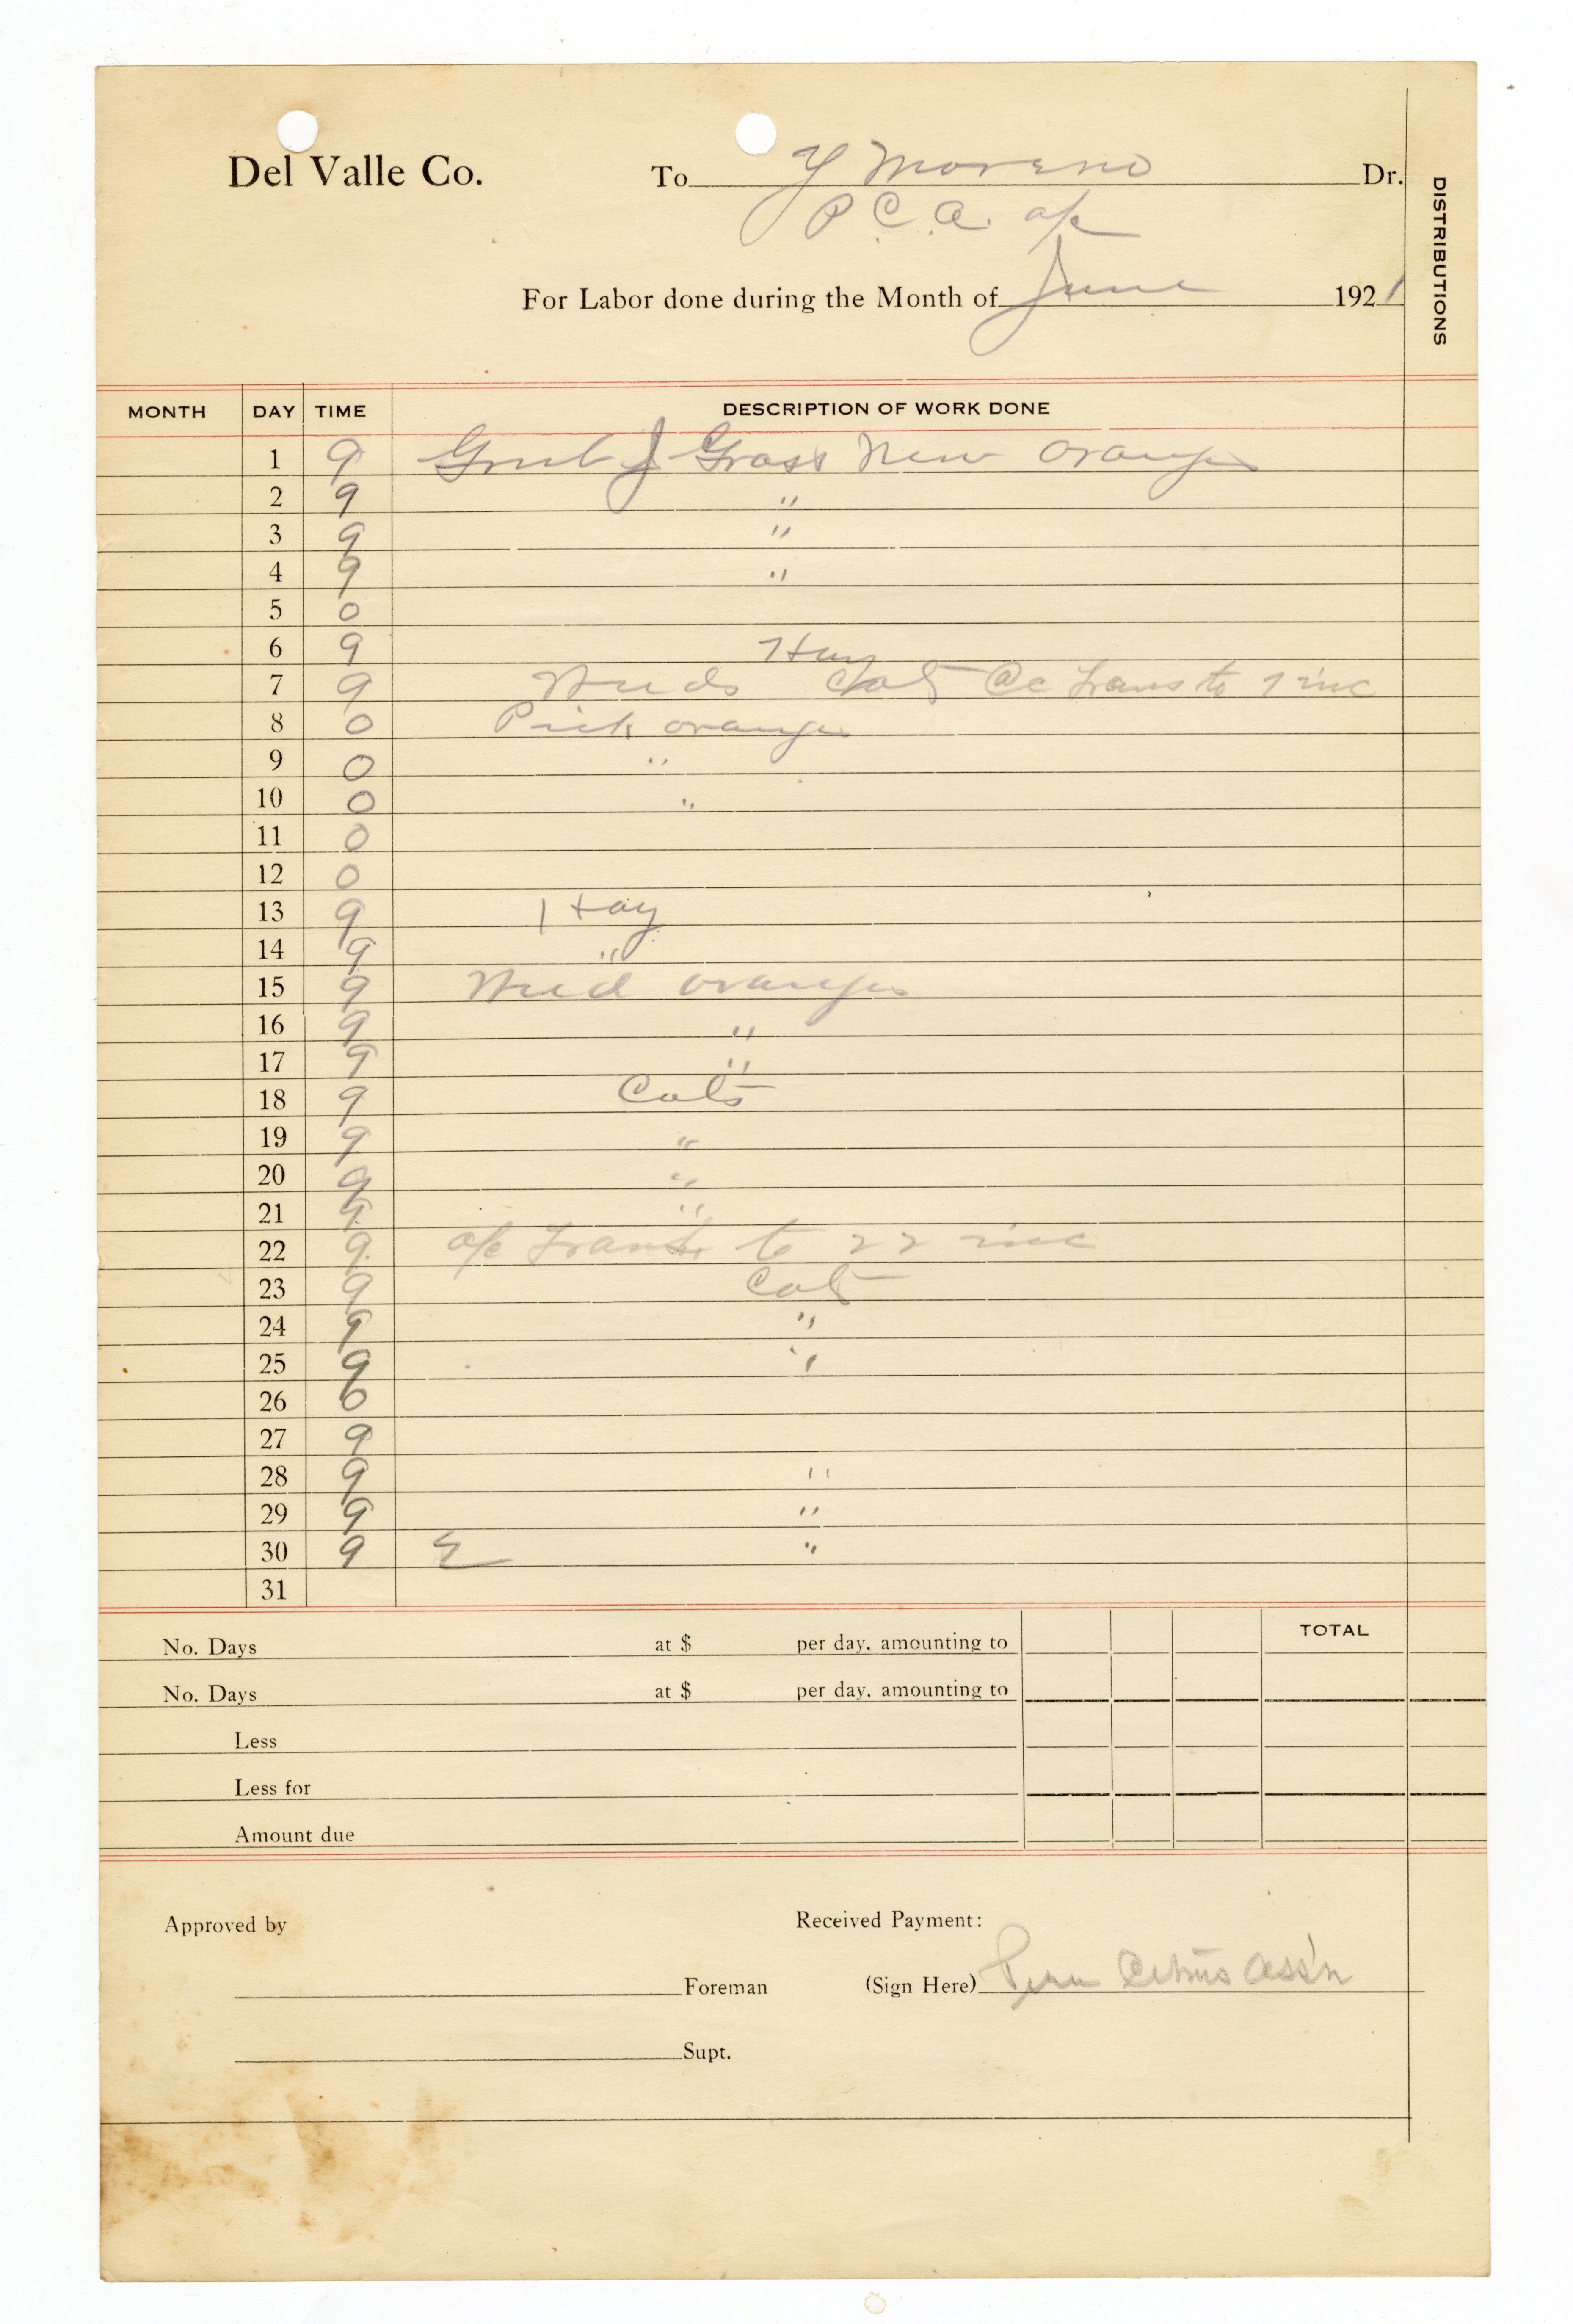 Del Valle Co. To Y Moreno Dr.
P.C.A. a/c
For Labor done during the Month of June 1921
DISTRIBUTIONS
MONTH DAY TIME DESCRIPTION OF WORK DONE
1 9 Grub J Grass New oranges
2 9 "
3 9 "
4 9 "
5 0
6 9 Hay
7 9 Weeds Cots a/c Trans to 7 inc
8 0 Pick oranges
9 0 "
10 0 "
11 0
12 0
13 9 Hay
14 9 "
15 9 Weed oranges
16 9 "
17 9 "
18 9 Cots
19 9 "
20 9 "
21 9 "
22 9 a/c Trans. to 22 inc
23 9 Cots
24 9 "
25 9 "
26 0
27 9
28 9 "
29 9 "
30 9 "
31
TOTAL
No. Days at $ per day, amounting to
No. Days at $ per day, amounting to
Less
Less for
Amount due
Approved by Received Payment:
Foreman (Sign Here) Piru Citrus Ass'n
Supt.